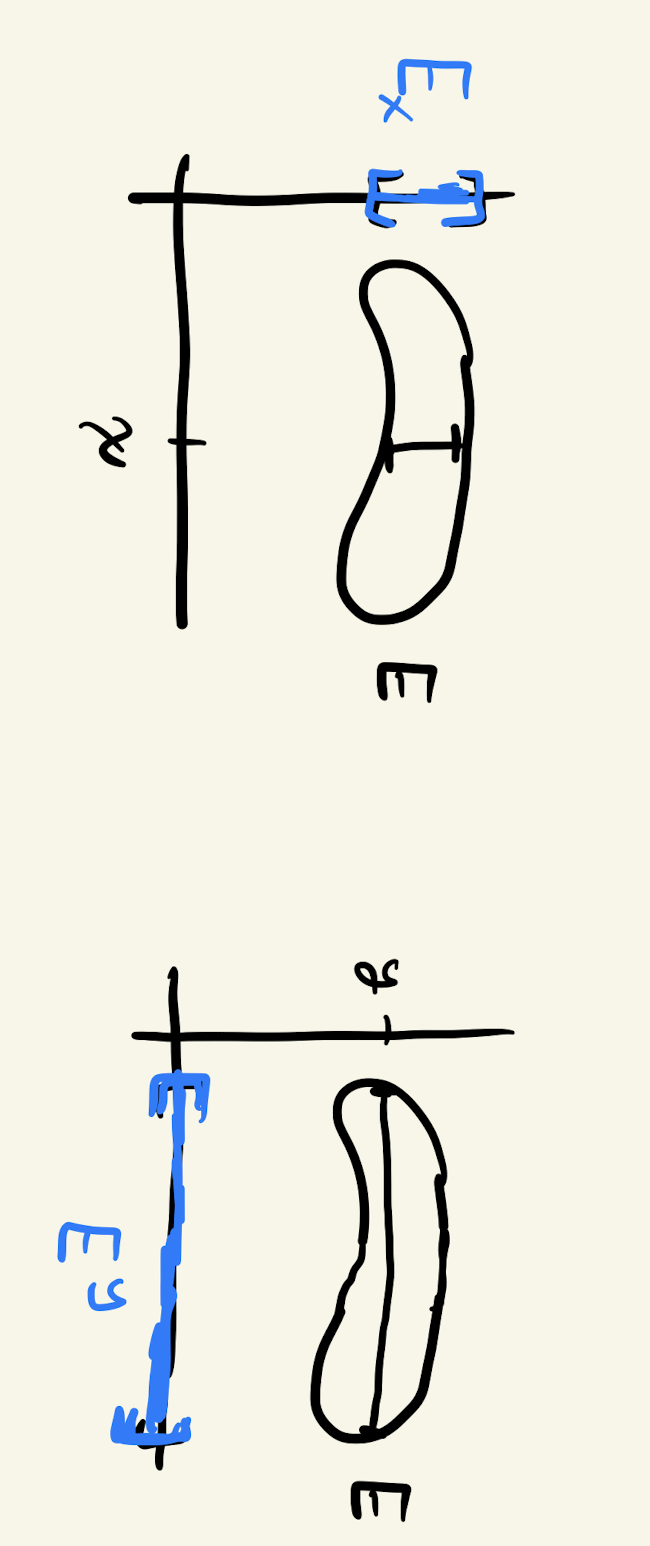 E_x
x
E
y
E_y
E